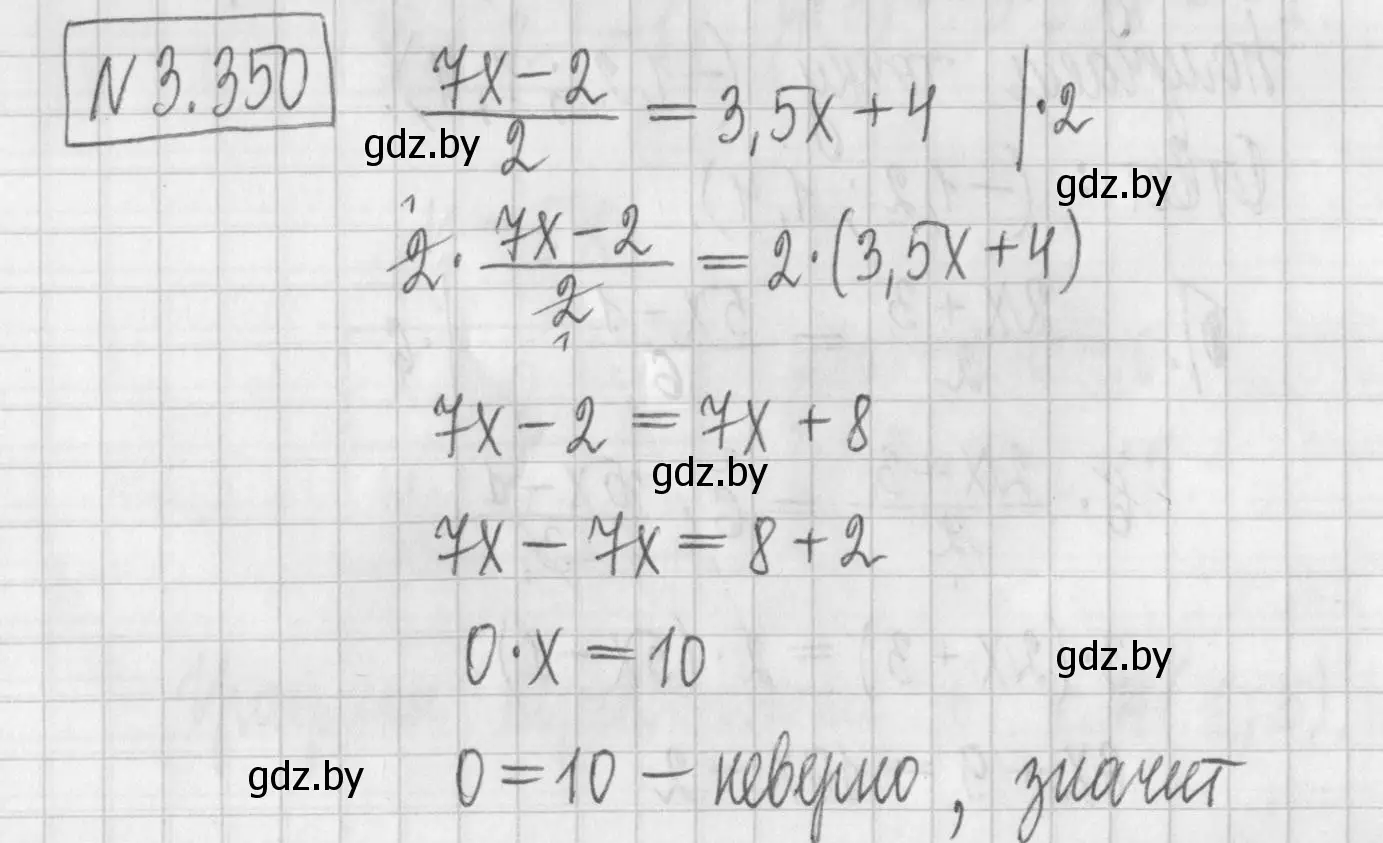 N 3.350
(7x − 2)/2 = 3,5x + 4 | · 2
gdz.by
gdz.by
2 · (7x − 2)/2 = 2 · (3,5x + 4)
1
1
7x − 2 = 7x + 8
gdz.by
7x − 7x = 8 + 2
0 · x = 10
gdz.by
0 = 10 − неверно, значит
gdz.by